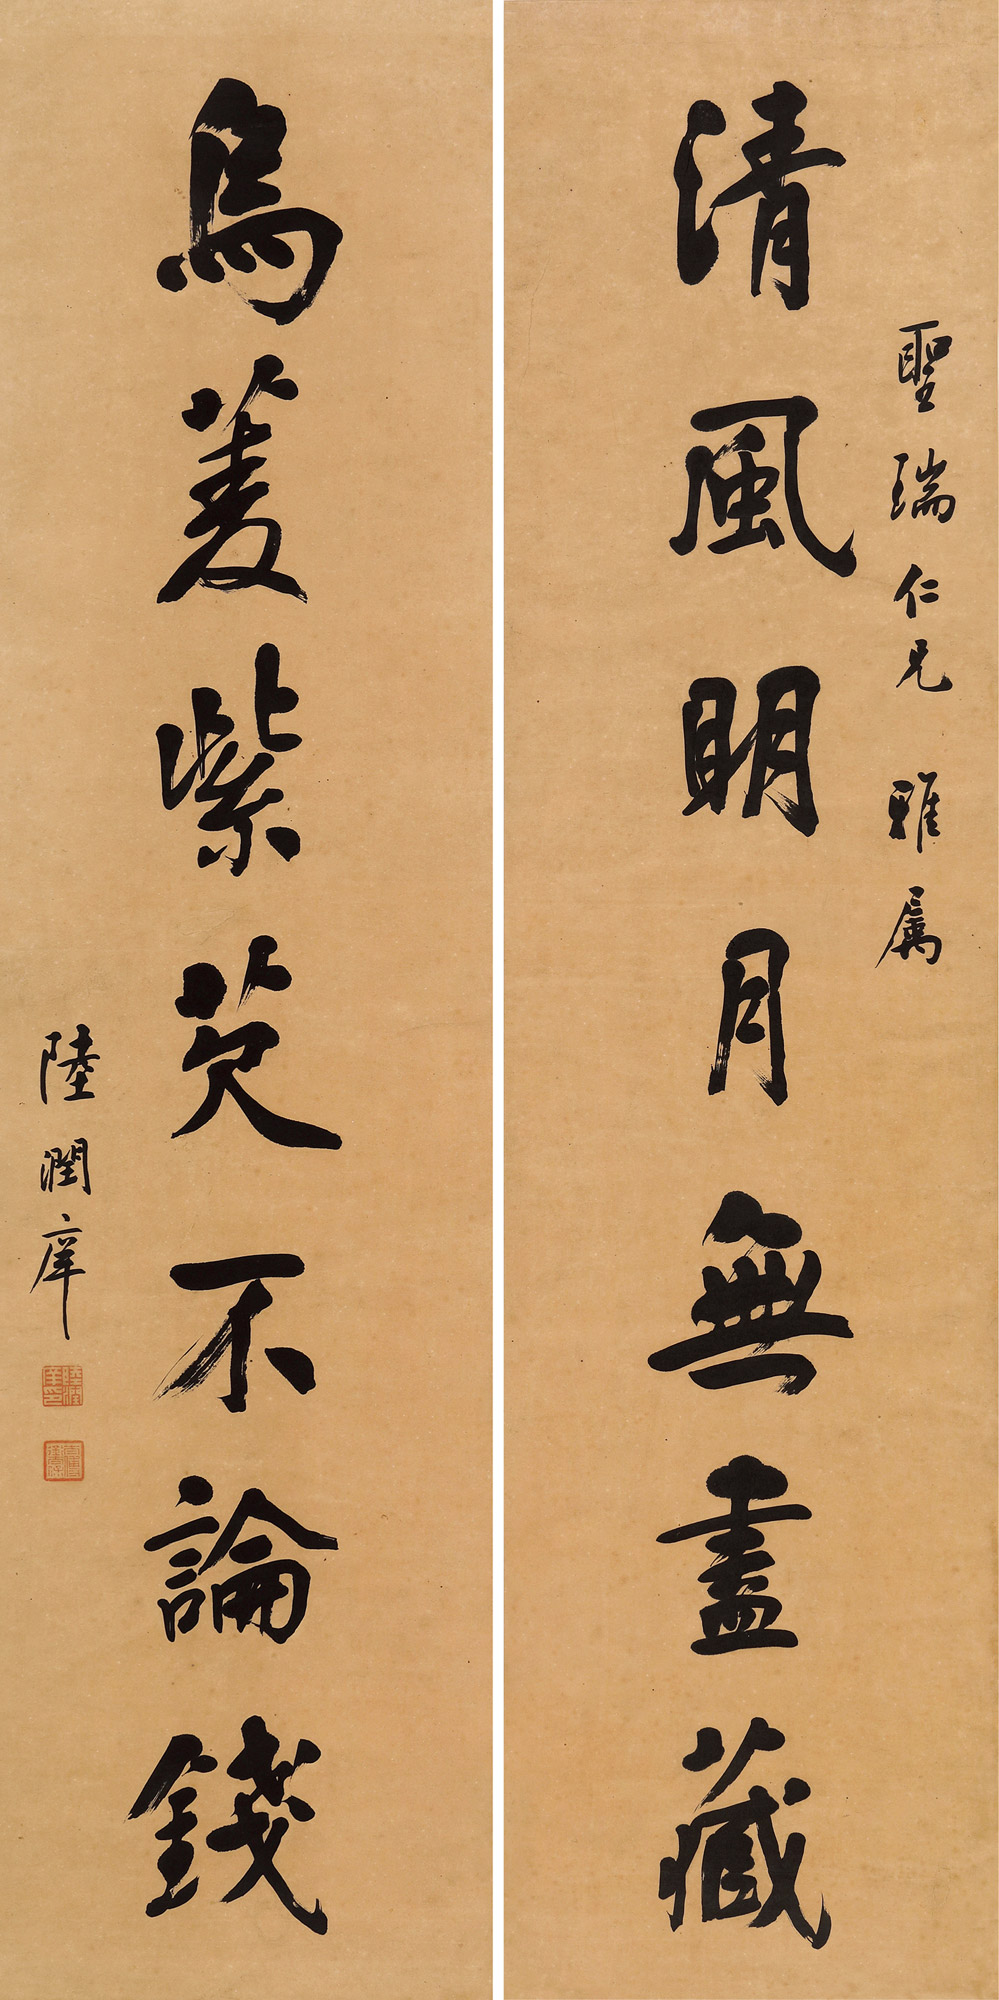 聖瑞仁兄 雅属
清風明月無盡藏
烏菱紫芡不論錢
陸潤庠